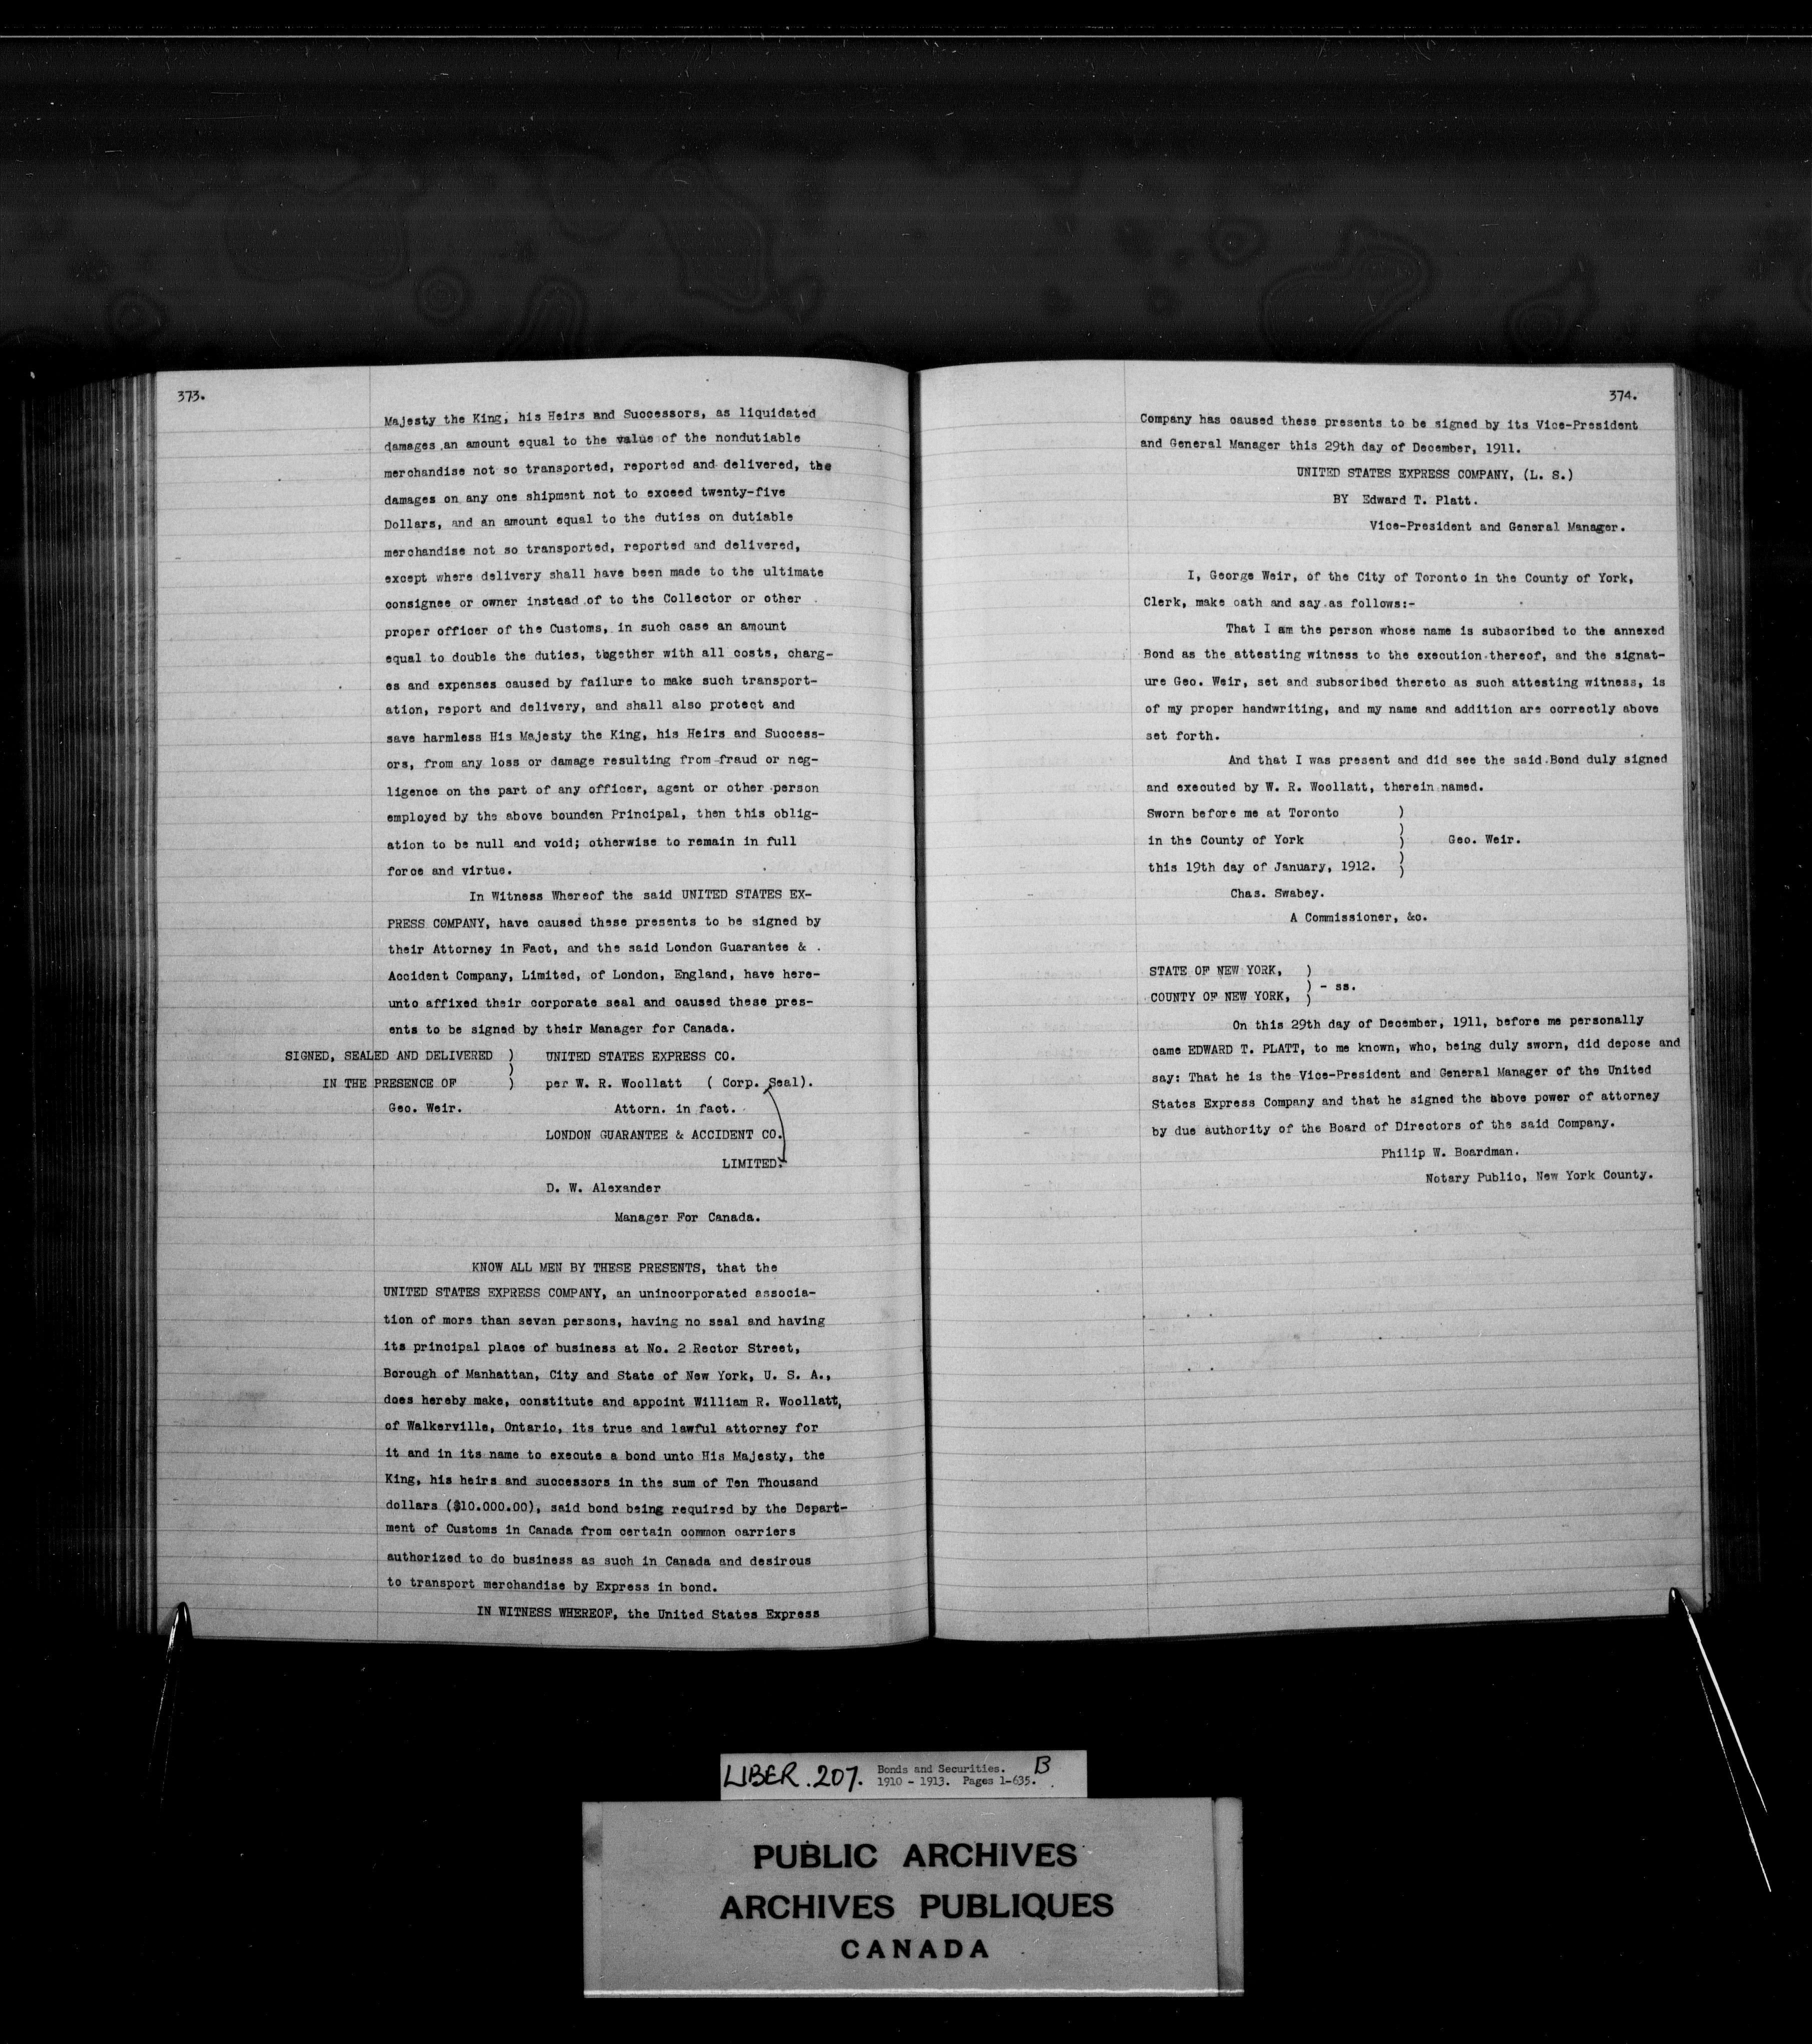 373.
Majesty the King, his Heirs and Successors, as liquidated
damages an amount equal to the value of the nondutiable
merchandise not so transported, reported and delivered, the
damages on any one shipment not to exceed twenty-five
Dollars, and an amount equal to the duties on dutiable
merchandise not so transported, reported and delivered,
except where delivery shall have been made to the ultimate
consignee or owner instead of to the Collector or other
proper officer of the Customs, in such case an amount
equal to double the duties, together with all costs, charg-
es and expenses caused by failure to make such transport-
ation, report and delivery, and shall also protect and
save harmless His Majesty the King, his Heirs and Success-
ors, from any loss or damage resulting from fraud or neg-
ligence on the part of any officer, agent or other person
employed by the above bounden Principal, then this oblig-
ation to be null and void; otherwise to remain in full
force and virtue.
In Witness Whereof the said UNITED STATES EX-
PRESS COMPANY, have caused these presents to be signed by
their Attorney in Fact, and the said London Guarantee &
Accident Company, Limited, of London, England, have here-
unto affixed their corporate seal and caused these pres-
ents to be signed by their Manager for Canada.
SIGNED, SEALED AND DELIVERED ) UNITED STATES EXPRESS CO.
)
IN THE PRESENCE OF ) per W. R. Woollatt ( Corp. Seal).
Geo. Weir. Attorn. in fact.
LONDON GUARANTEE & ACCIDENT CO.
LIMITED.
D. W. Alexander
Manager For Canada.
KNOW ALL MEN BY THESE PRESENTS, that the
UNITED STATES EXPRESS COMPANY, an unincorporated associa-
tion of more than seven persons, having no seal and having
its principal place of business at No. 2 Rector Street,
Borough of Manhattan, City and State of New York, U. S. A.,
does hereby make, constitute and appoint William R. Woollatt,
of Walkerville, Ontario, its true and lawful attorney for
it and in its name to execute a bond unto His Majesty, the
King, his heirs and successors in the sum of Ten Thousand
dollars ($10.000.00), said bond being required by the Depart-
ment of Customs in Canada from certain common carriers
authorized to do business as such in Canada and desirous
to transport merchandise by Express in bond.
IN WITNESS WHEREOF, the United States Express
374.
Company has caused these presents to be signed by its Vice-President
and General Manager this 29th day of December, 1911.
UNITED STATES EXPRESS COMPANY, (L. S.)
BY Edward T. Platt.
Vice-President and General Manager.
I, George Weir, of the City of Toronto in the County of York,
Clerk, make oath and say as follows:-
That I am the person whose name is subscribed to the annexed
Bond as the attesting witness to the execution thereof, and the signat-
ure Geo. Weir, set and subscribed thereto as such attesting witness, is
of my proper handwriting, and my name and addition are correctly above
set forth.
And that I was present and did see the said Bond duly signed
and executed by W. R. Woollatt, therein named.
Sworn before me at Toronto )
)
in the County of York ) Geo. Weir.
)
this 19th day of January, 1912. )
Chas. Swabey.
A Commissioner, &c.
STATE OF NEW YORK, )
) - ss.
COUNTY OF NEW YORK, )
On this 29th day of December, 1911, before me personally
came EDWARD T. PLATT, to me known, who, being duly sworn, did depose and
say: That he is the Vice-President and General Manager of the United
States Express Company and that he signed the above power of attorney
by due authority of the Board of Directors of the said Company.
Philip W. Boardman.
Notary Public, New York County.
LIBER. 207. Bonds and Securities. B
1910 - 1913. Pages 1-635.
PUBLIC ARCHIVES
ARCHIVES PUBLIQUES
CANADA